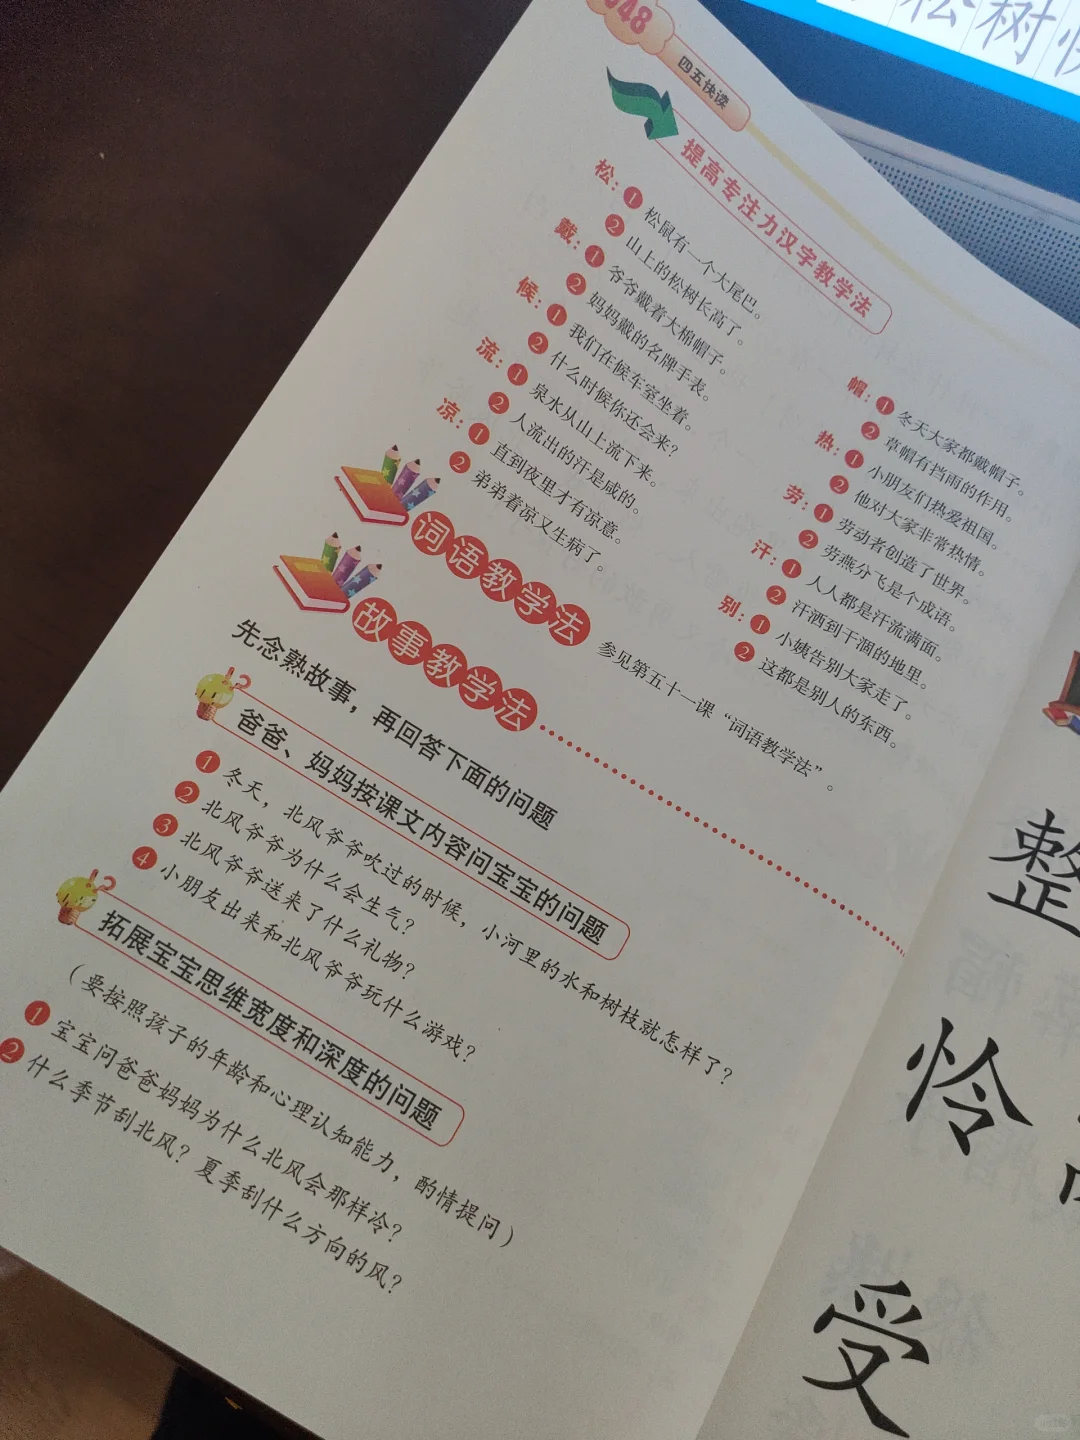 048
四五快读
提高专注力汉字教学法
松：❶ 松鼠有一个大尾巴。
❷ 山上的松树长高了。
戴：❶ 爷爷戴着大棉帽子。
❷ 妈妈戴的名牌手表。
候：❶ 我们在候车室坐着。
❷ 什么时候你还会来？
流：❶ 泉水从山上流下来。
❷ 人流出的汗是咸的。
凉：❶ 直到夜里才有凉意。
❷ 弟弟着凉又生病了。
帽：❶ 冬天大家都戴帽子。
❷ 草帽有挡雨的作用。
热：❶ 小朋友们热爱祖国。
❷ 他对大家非常热情。
劳：❶ 劳动者创造了世界。
❷ 劳燕分飞是个成语。
汗：❶ 人人都是汗流满面。
❷ 汗洒到干涸的地里。
别：❶ 小姨告别大家走了。
❷ 这都是别人的东西。
词语教学法 参见第五十一课“词语教学法”。
故事教学法
先念熟故事，再回答下面的问题
爸爸、妈妈按课文内容问宝宝的问题
❶ 冬天，北风爷爷吹过的时候，小河里的水和树枝就怎样了？
❷ 北风爷爷为什么会生气？
❸ 北风爷爷送来了什么礼物？
❹ 小朋友出来和北风爷爷玩什么游戏？
拓展宝宝思维宽度和深度的问题
（要按照孩子的年龄和心理认知能力，酌情提问）
❶ 宝宝问爸爸妈妈为什么北风会那样冷？
❷ 什么季节刮北风？夏季刮什么方向的风？
松树
整
怜
受